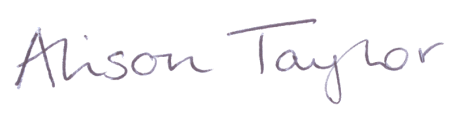 Alison Taylor